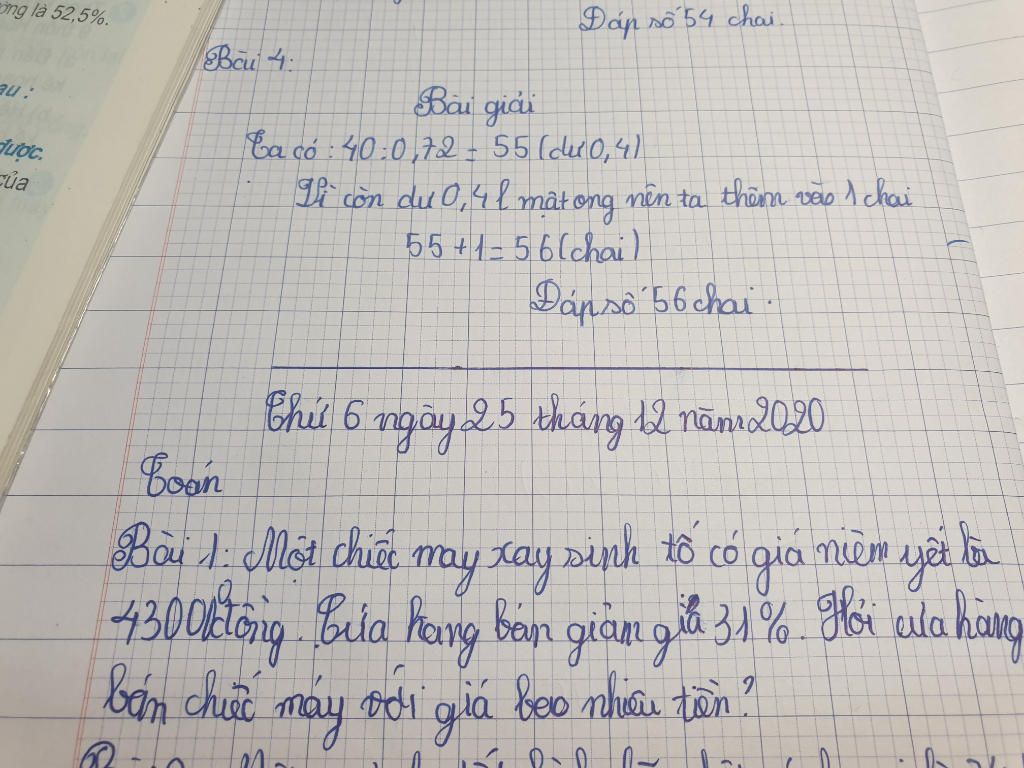 ờng là 52,5%.
au :
được.
của
Đáp số 54 chai.
Bài 4:
Bài giải
Ta có : 40 : 0,72 = 55 (dư 0,4)
Vì còn dư 0,4 l mật ong nên ta thêm vào 1 chai
55 + 1 = 56 (chai)
Đáp số 56 chai.
Thứ 6 ngày 25 tháng 12 năm 2020
Toán
Bài 1: Một chiếc may xay sinh tố có giá niêm yết là
đồng. Cửa hang bán giảm giá 31%. Hỏi cửa hàng
bán chiếc máy với giá beo nhiêu tiền?